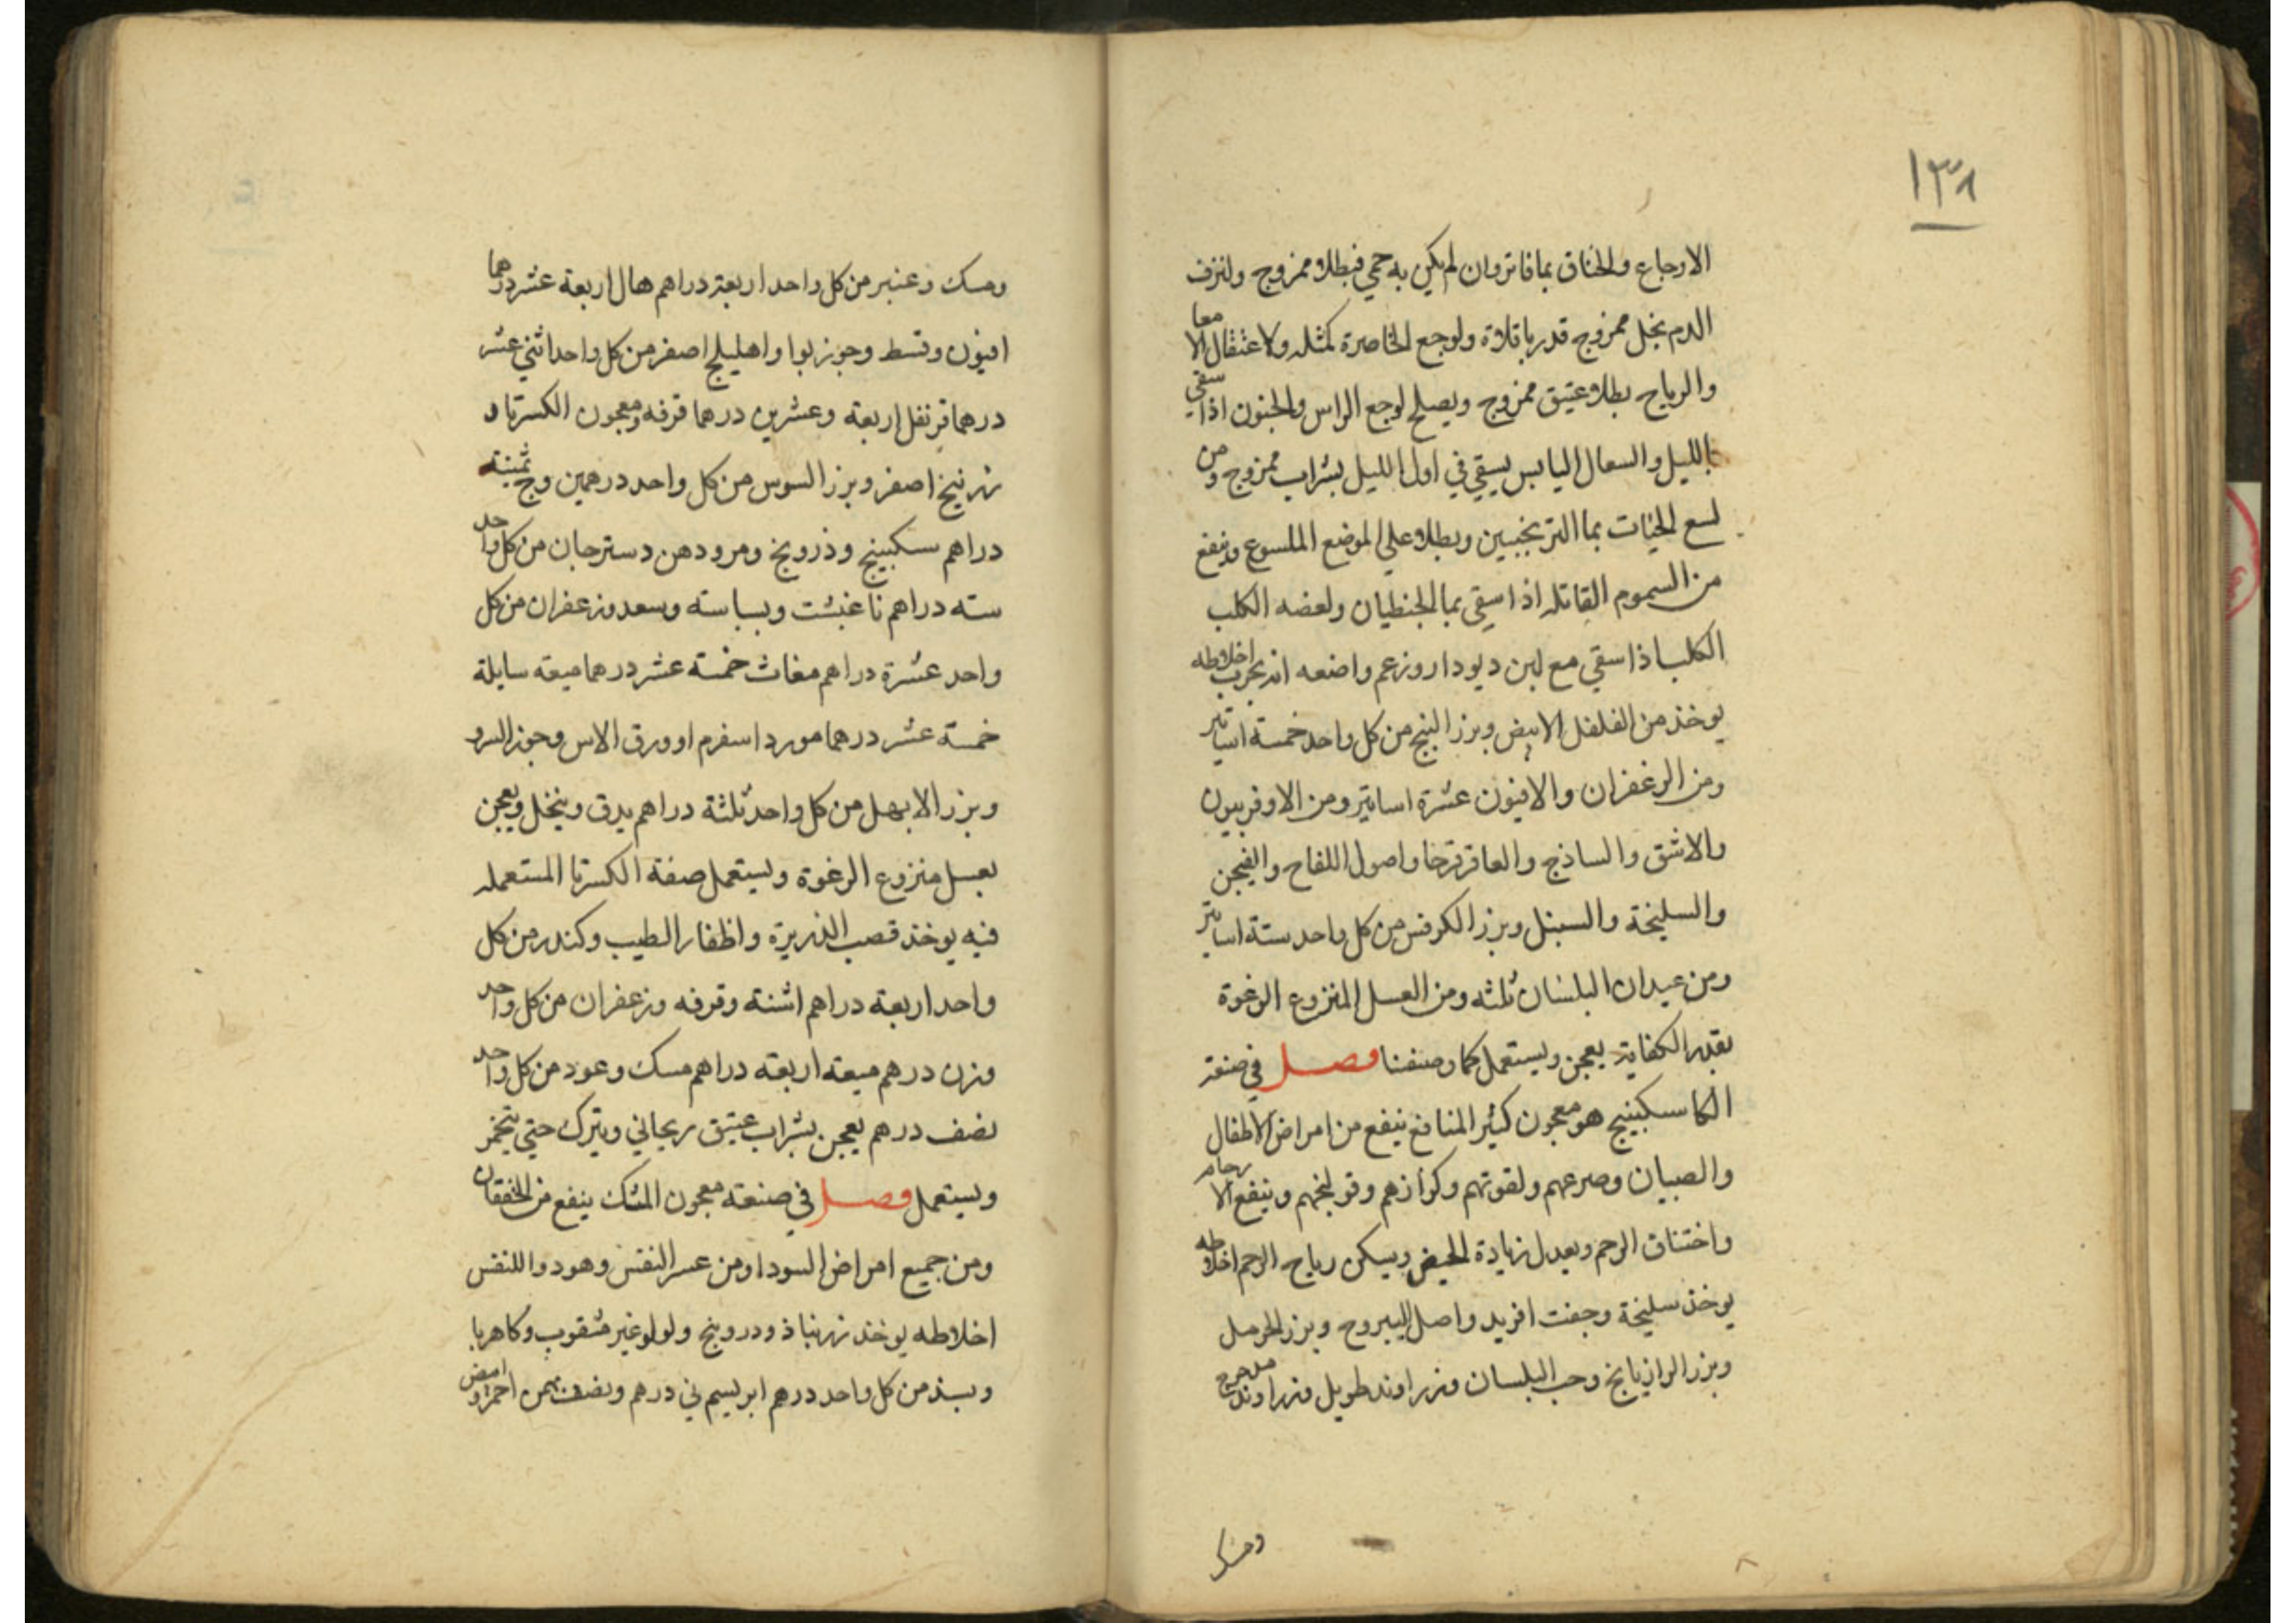 ١٣٨
الاوجاع والخناق بما فاتر وان لم يكن به حمي فبطلا ممزوج ولنزف
الدم بخل ممزوج قدر باقلاة ولوجع الخاصرة كمثله ولاعتقال الامعا
والرياح بطلا عتيق ممزوج ويصلح لوجع الراس والجنون اذا سقي
بالليل والسعال اليابس يسقي في اول الليل بشراب ممزوج ومن
لسع الحيات بما الترنجبين وبطلا علي الموضع الملسوع وينفع
من السموم القاتله اذا سقي بما الجنطيان ولعضه الكلب
الكلب اذا سقي مع لبن ديودار وزعم واضعه انه مجرب اخلاطه
يوخذ من الفلفل الابيض وبزر البنج من كل واحد خمسة اساتير
ومن الزعفران والافيون عشرة اساتير ومن الاوفربيون
والاشق والساذج والعاقرقرحا واصول اللفاح والفيجن
والسليخة والسنبل وبزر الكرفس من كل واحد ستة اساتير
ومن عيدان البلسان ثلثه ومن العسل المنزوع الرغوة
بقدر الكفاية يعجن ويستعمل كما وصفنا فصل في صنعة
الكاسكبينج هو معجون كثير المنافع ينفع من امراض الاطفال
والصبيان وصرعهم ولقوتهم وكزازهم وقولنجهم وينفع الارحام
واختناق الرحم ويعدل زيادة الحيض ويسكن رياح الرحم اخلاطه
يوخذ سليخة وجفت افريد واصل اليبروح وبزر الحرمل
وبزر الرازيانج وحب البلسان وزراوند طويل وزراوند مدحرج
ومسك
ومسك وعنبر من كل واحد اربعة دراهم هال اربعة عشر درهما
افيون وقسط وجوزبوا واهليلج اصفر من كل واحد اثني عشر
درهما قرنفل اربعة وعشرين درهما قرفه ومعجون الكسرتا و
زرنيخ اصفر وبزر السوس من كل واحد درهمين وج ثمنية
دراهم سكبينج وذرونج ومر ودهن دسترجان من كل واحد
سته دراهم ناغبشت وبسباسته وسعد وزعفران من كل
واحد عشرة دراهم مغاث خمسة عشر درهما ميعه سايلة
خمسة عشر درهما مورد اسفرم او ورق الاس وجوز السرو
وبزر الابهل من كل واحد ثلثة دراهم يدق وينخل ويعجن
بعسل منزوع الرغوة ويستعمل صفة الكسرتا المستعمله
فيه يوخذ قصب الذريرة واظفار الطيب وكندر من كل
واحد اربعة دراهم اشنة وقرفه وزعفران من كل واحد
وزن درهم ميعه اربعه دراهم مسك وعود من كل واحد
نصف درهم يعجن بشراب عتيق ريحاني ويترك حتي يتخمر
ويستعمل فصل في صنعته معجون المسك ينفع من الخفقان
ومن جميع امراض السودا ومن عسر النفس وهو دوا للنفس
اخلاطه يوخذ زرنباذ ودرونج ولولو غير مثقوب وكاهربا
وبسذ من كل واحد درهم ابريسم ني درهم ونصف بهمن احمر وابيض